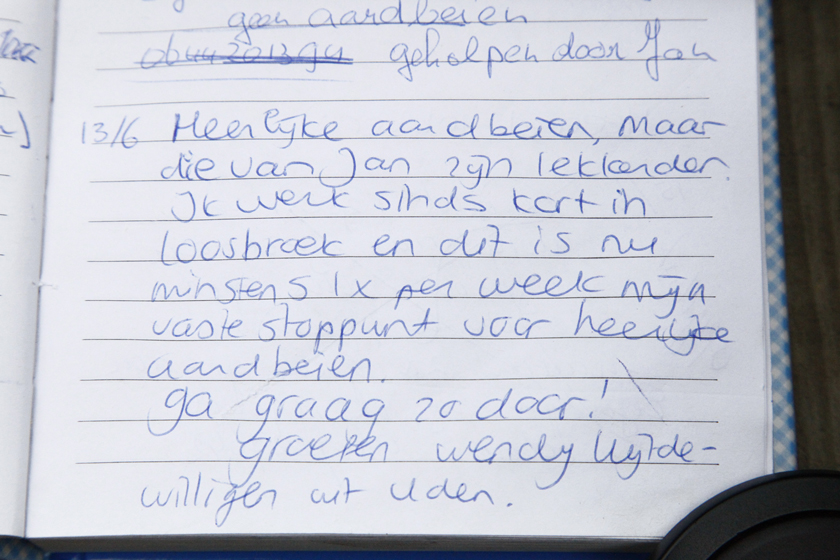 geen aardbeien
geholpen door Jan
13/6 Heerlijke aardbeien, maar
die van Jan zijn lekkerder.
Ik werk sinds kort in
Loosbroek en dit is nu
minstens 1x per week mijn
vaste stoppunt voor heerlijke
aardbeien.
ga graag zo door!
groeten wendy Uijtde-
willigen uit Uden.